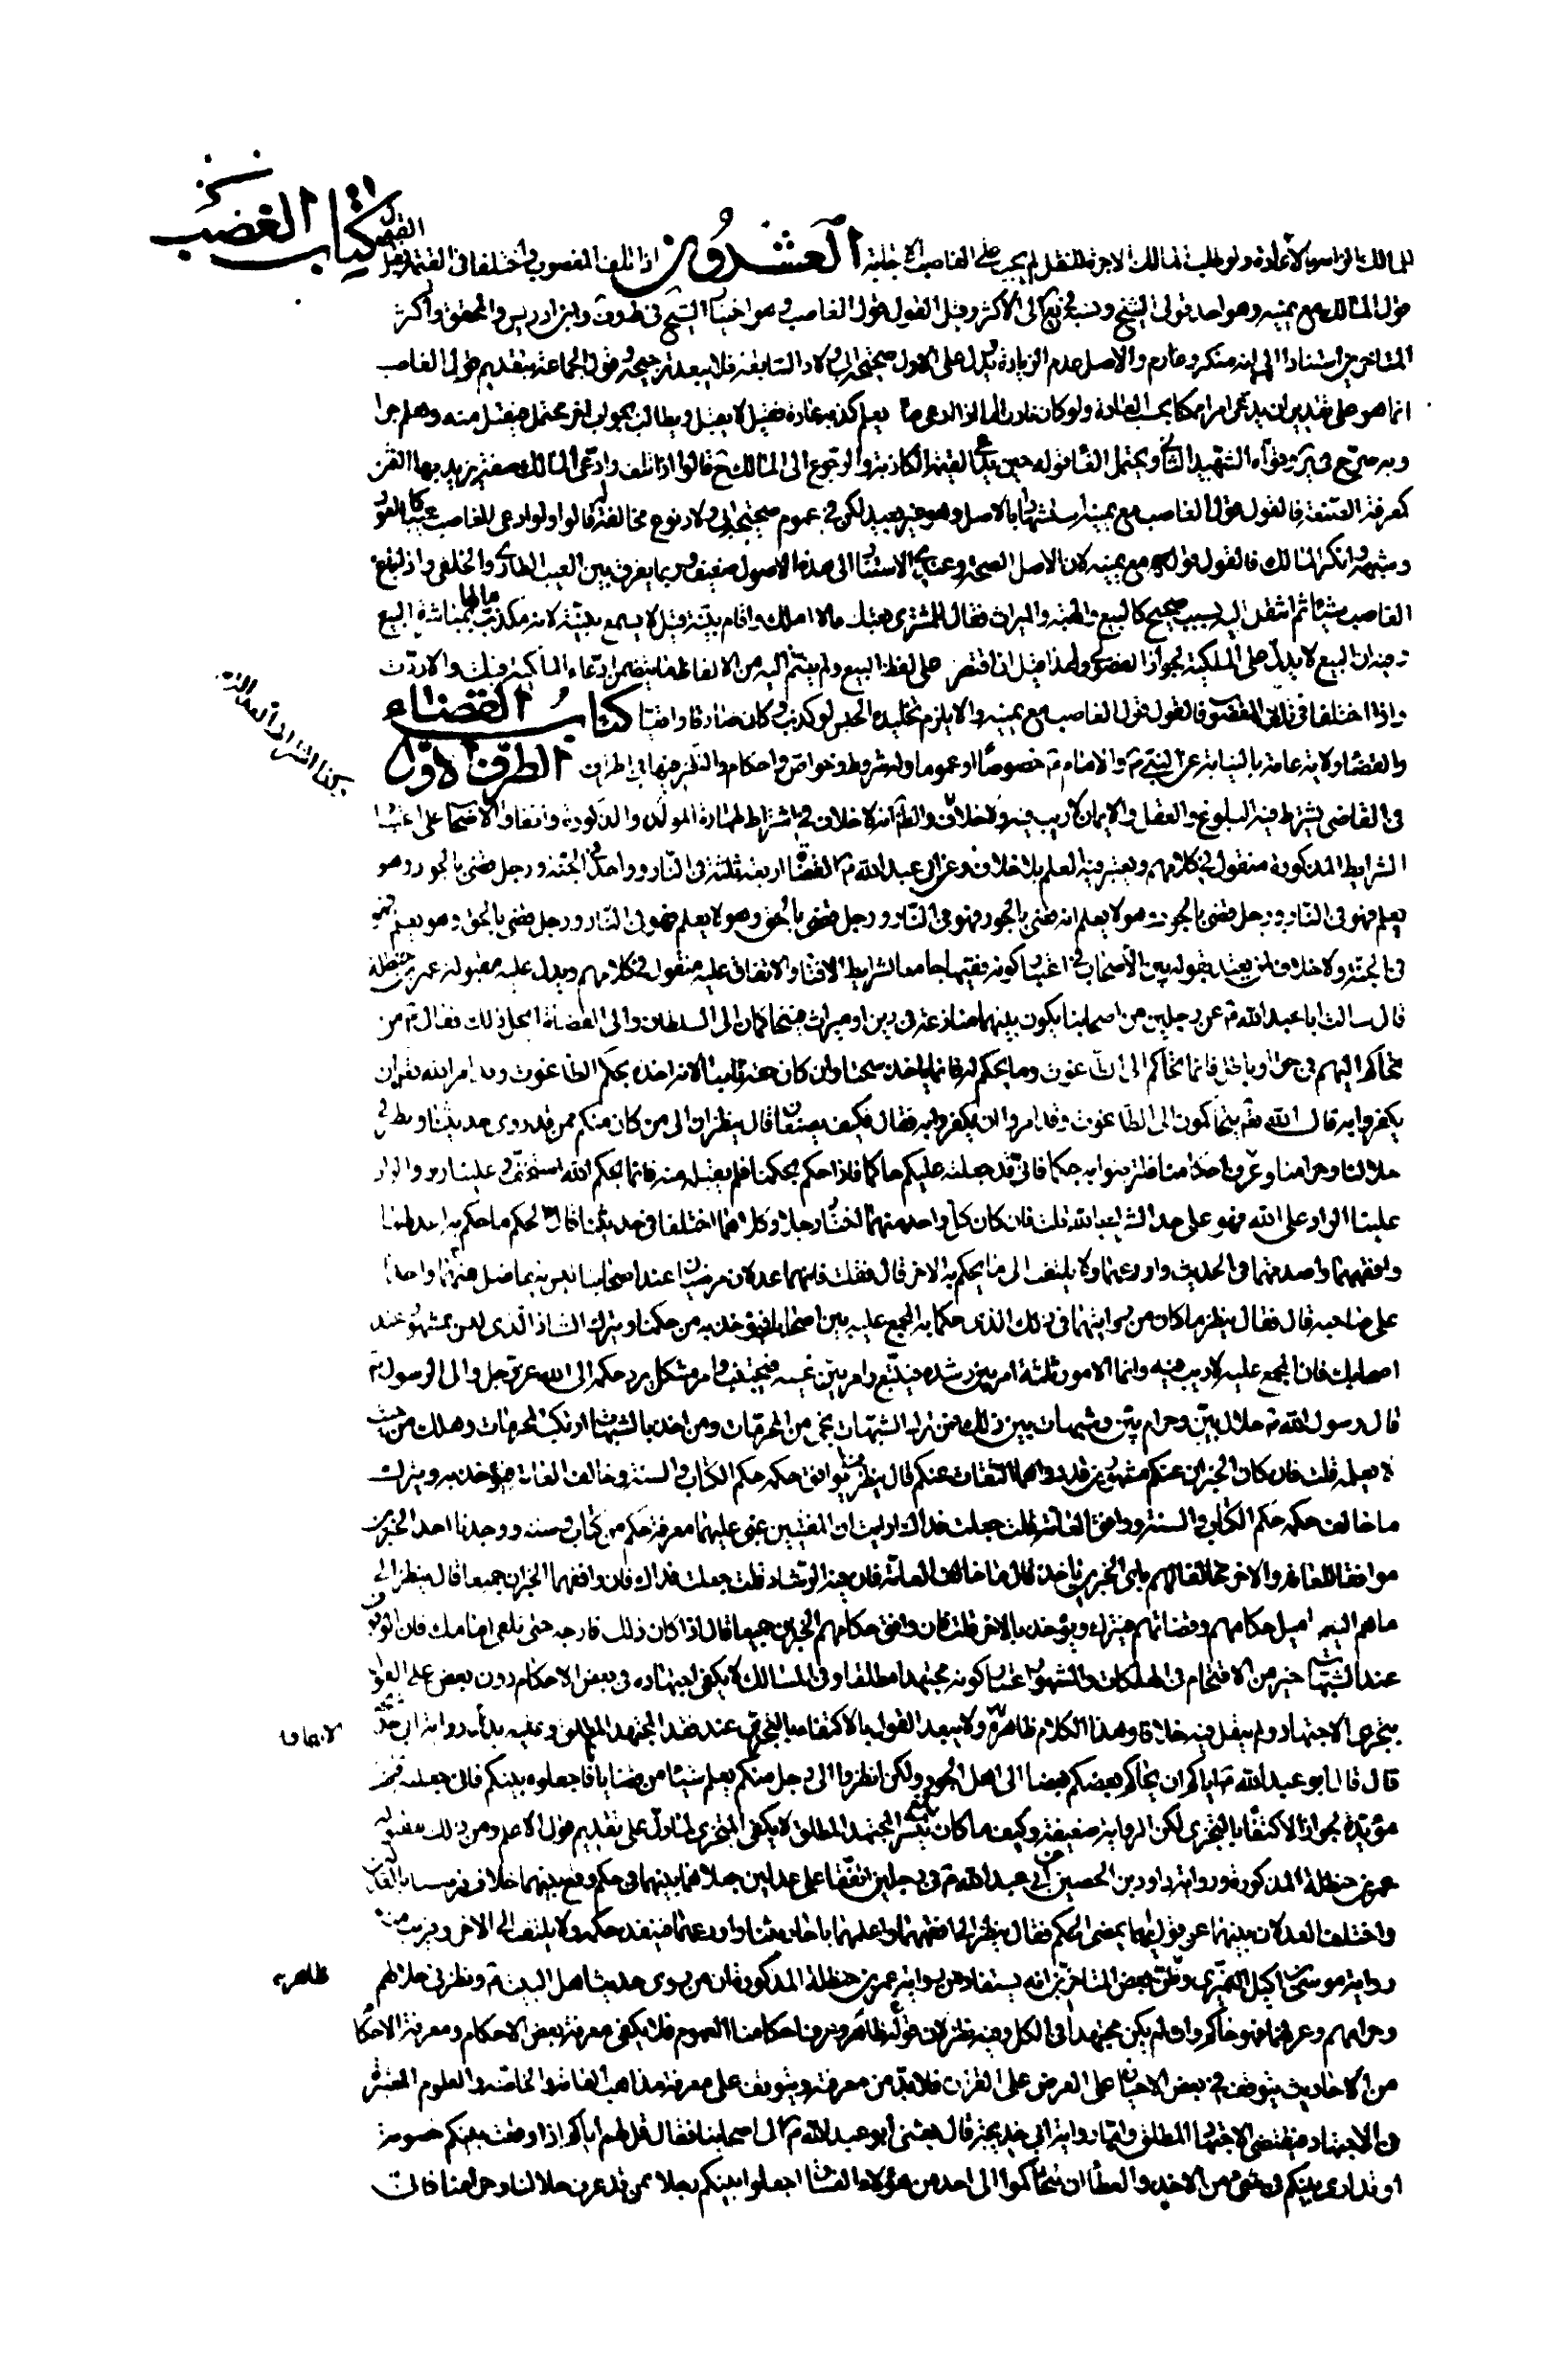 كتاب الغضب
للمالك الزامه بالاعادة ولو طلب المالك الاجرة للنقل لم يجب على الغاصب اجابته العشرون اذا تلف المغصوب واختلفا في القيمة قيل القول
قول المالك مع يمينه وهو احد قولي الشيخ ونسب في يع الى الاكثر وقيل القول قول الغاصب وهو اختيار الشيخ في ط وف وابن ادريس والمحقق واكثر
المتاخرين استنادا الى انه منكر وغارم والاصل عدم الزيادة يدل على الاول صحيحة ابي ولاد السابقة فلا يبعد ترجيحه وقول الجماعة بتقديم قول الغاصب
انما هو على تقدير ان يدعي امرا ممكنا بحسب العادة ولو كان نادرا اما اذا ادعى ما يعلم كذبه عادة فقيل لا يقبل ويطالب بجواب اخر محتمل فيقبل منه وهلم جرا
وبه صرح في كره وقواه الشهيد الثاني ويحتمل الغاء قوله حين يدعى القيمة الكاذبة والرجوع الى المالك ح قالوا اذا تلف وادعى المالك صفة يزيد بها الثمن
كمعرفة الصنعة فالقول قول الغاصب مع يمينه استشهادا بالاصل وهو غير بعيد لكن في عموم صحيحة ابي ولاد نوع مخالفة له قالوا ولو ادعى الغاصب عيبا كالعور
وشبهه وانكر المالك فالقول قوله مع يمينه لان الاصل الصحة وعندي الاستناد الى هذه الاصول ضعيف وربما يفرق بين العيب الطاري والخلقي واذا باع
الغاصب شيئا ثم انتقل اليه بسبب صحيح كالبيع والهبة والميراث فقال للمشتري بعتك ما لا املك واقام بينة قيل لا يسمع بينته لانه مكذب لها بمباشرة البيع
وفيه ان البيع لا يدل على الملكية لجواز الفضولي ولهذا قيل ان اقتصر على لفظ البيع ولم يضم اليه من الالفاظ ما يتضمن ادعاء المالكية قبلت والا ردت
واذا اختلفا في تلف المغصوب فالقول قول الغاصب مع يمينه والا يلزم تخليده الحبس لو كذب وكان صادقا واقعا كتاب القضاء
والقضاء ولاية عامة بالنيابة عن النبي ص والامام ع خصوصا او عموما وله شروط وخواص واحكام والنظر فيها في اطراف الطرف الاول
في القاضي يشترط فيه البلوغ والعقل والايمان لا ريب فيه ولا خلاف والظ انه لا خلاف في اشتراط طهارة المولد والذكورة واتفاق الاصحاب على اعتبار
الشرايط المذكورة منقول في كلامهم ويعتبر فيه العلم بلا خلاف وعن ابي عبد الله ع القضاة اربعة ثلثة في النار وواحد في الجنة ورجل قضى بالجور وهو
يعلم فهو في النار ورجل قضى بالجور وهو لا يعلم انه قضى بالجور فهو في النار ورجل قضى بالحق وهو لا يعلم فهو في النار ورجل قضى بالحق وهو يعلم فهو
في الجنة ولا خلاف لمن يعتد بقوله بين الأصحاب في اعتبار كونه فقيها جامعا لشرايط الافتاء والاتفاق عليه منقول في كلامهم ويدل عليه مقبولة عمر بن حنظلة
قال سالت ابا عبد الله ع عن رجلين من اصحابنا يكون بينهما منازعة في دين او ميراث فتحاكما الى السلطان والى القضاة ايحل ذلك فقال ع من
تحاكم اليهم في حق او باطل فانما تحاكم الى الطاغوت وما يحكم له فانما ياخذ سحتا وان كان حقه ثابتا لانه اخذه بحكم الطاغوت وقد امر الله تعالى ان
يكفر به قال الله تع يتحاكمون الى الطاغوت وقد امروا ان يكفروا به فقال فكيف يصنعان قال ينظران الى من كان منكم ممن قد روى حديثنا ونظر في
حلالنا وحرامنا وعرف احكامنا فليرضوا به حكما فاني قد جعلته عليكم حاكما فاذا حكم بحكمنا فلم يقبل منه فانما بحكم الله استخف وعلينا رد والراد
علينا الراد على الله فهو على حد الشرك بالله قلت فان كان كل واحد منهما اختار رجلا وكلاهما اختلفا في حديثنا قال الحكم ما حكم به اعدلهما
وافقههما واصدقهما في الحديث واورعهما ولا يلتفت الى ما يحكم به الاخر قال فقلت فانهما عدلان مرضيان عند اصحابنا ليس يتفاضل منهما واحد
على صاحبه قال فقال ينظر ما كان من روايتهما في ذلك الذي حكما به المجمع عليه بين اصحابك فيؤخذ به من حكمنا ويترك الشاذ الذي ليس بمشهور عند
اصحابك فان المجمع عليه لا ريب فيه وانما الامور ثلثة امر بين رشده فيتبع وامر بين غيه فيجتنب وامر مشكل يرد حكمه الى الله عز وجل والى الرسول ص
قال رسول الله ص حلال بين وحرام بين وشبهات بين ذلك فمن ترك الشبهات نجى من المحرمات ومن اخذ بالشبهات ارتكب المحرمات وهلك من حيث
لا يعلم قلت فان كان الخبران عنكم مشهورين قد رواهما الثقات عنكم قال ينظر ما يوافق حكمه حكم الكتاب والسنة وخالف العامة فيؤخذ به ويترك
ما خالف حكمه حكم الكتاب والسنة ووافق العامة قلت جعلت فداك ارايت ان المفتيين عنى عليهما معرفة حكمه من كتاب وسنة ووجدنا احد الخبرين
موافقا للعامة والاخر مخالفا لهم باي الخبرين ناخذ قال ما خالف العامة فان فيه الرشاد قلت جعلت فداك فان وافقهما الخبران جميعا قال ينظر الى
ما هم اليه اميل حكامهم وقضاتهم فيترك ويؤخذ بالاخر قلت فان وافق حكامهم الخبرين جميعا قال اذا كان ذلك فارجه حتى تلقى امامك فان الوقوف
عند الشبهات خير من الاقتحام في الهلكات والمشهور اعتبار كونه مجتهدا مطلقا وفي المسالك لا يكفي اجتهاده في بعض الاحكام دون بعض على القول
بتجزي الاجتهاد ولم ينقل فيه خلافا وهذا الكلام ظاهره ولا يبعد القول بالاكتفاء بالتجزي عند فقد المجتهد المطلق وعليه يدل رواية ابي خديجة
قال قال ابو عبد الله ع اياكم ان يحاكم بعضكم بعضا الى اهل الجور ولكن انظروا الى رجل منكم يعلم شيئا من قضايانا فاجعلوه بينكم فاني جعلته
مؤيدة لجواز الاكتفاء بالتجزي لكن الرواية ضعيفة وكيف ما كان المجتهد المطلق لا يكفي المتجزي لما دل على تقديم قول الاعلم ومن ذلك مقبولة
عمر بن حنظلة المذكورة ورواية داود بن الحصين عن ابي عبد الله ع في رجلين اتفقا على عدلين جعلاهما بينهما في حكم وقع بينهما خلاف فرضيا بالعدلين
واختلف العدلان بينهما عن قول ايهما يمضى الحكم فقال ينظر الى افقههما واعلمهما باحاديثنا واورعهما فينفذ حكمه ولا يلتفت الى الاخر ويقرب منه
رواية موسى بن اكيل النميري وظن بعض المتاخرين انه يستفاد من رواية عمر بن حنظلة المذكورة ان من روى حديث اهل البيت ع ونظر في حلالهم
وحرامهم وعرفهما فهو حاكم وان لم يكن مجتهدا في الكل وفيه نظر لان قوله وعرف احكامنا العموم فلا يكفى معرفة بعض الاحكام ومعرفة الاحكام
من الاحاديث يتوقف في بعض الاحيان على العرض على القران فلا بد من معرفته ويتوقف على معرفة مذاهب العامة والخاصة والعلوم المعتبرة
في الاجتهاد فيقتضي الاجتهاد المطلق وايضا رواية ابي خديجة قال بعثني ابو عبد الله ع الى اصحابنا فقال قل لهم اياكم اذا وقعت بينكم خصومة
او تدارى بينكم في شيء من الاخذ والعطاء ان تتحاكموا الى احد من هؤلاء الفساق اجعلوا بينكم رجلا ممن قد عرف حلالنا وحرامنا فاني
ظاهره